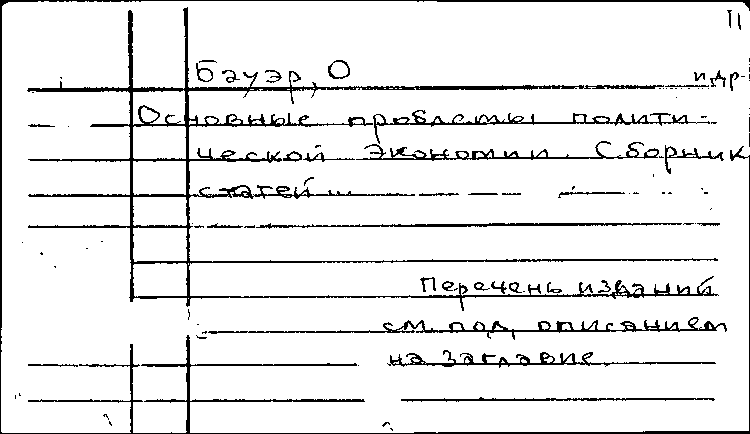 II
Бауэр, О и др.
Основные проблемы полити-
ческой экономии. Сборник
статей ...
Перечень изданий
см. под описанием
на заглавие.